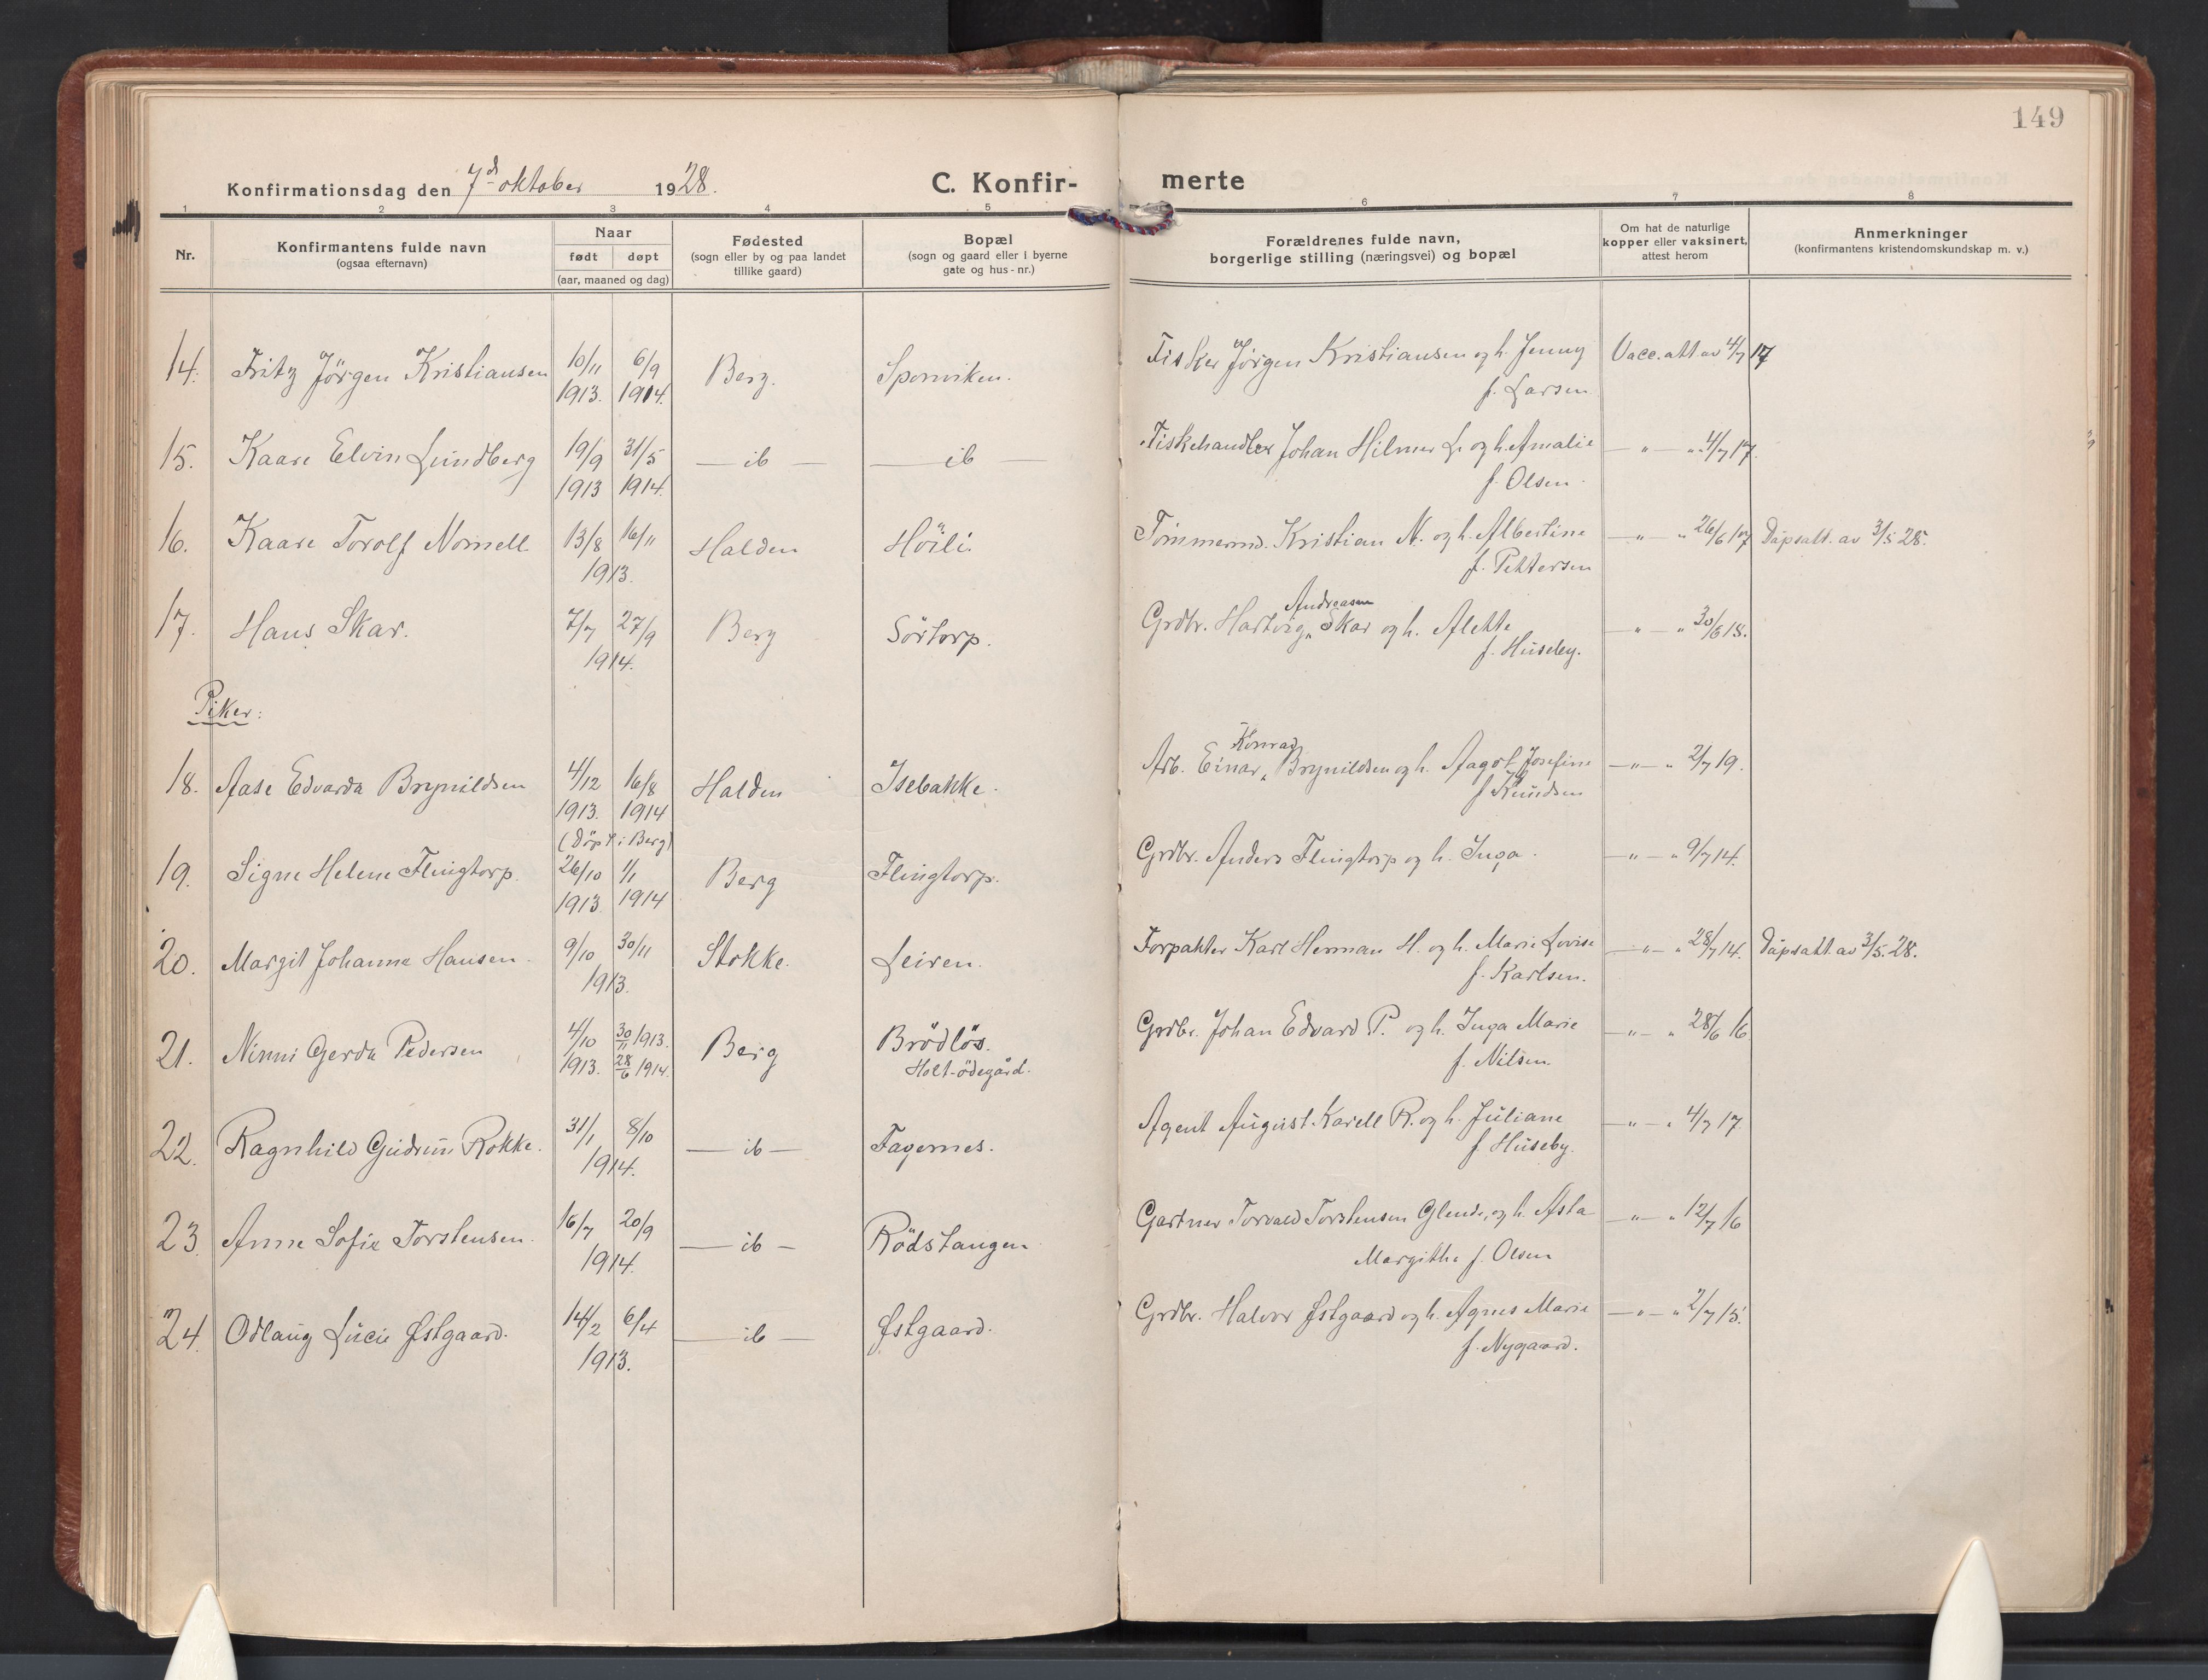 149
Konfirmationsdag den 7d oktober 1928. C. Konfir- merte
1 2 3 4 5 6 7 8
Nr. Konfirmantens fulde navn (ogsaa efternavn) Naar født døpt (aar, maaned og dag) Fødested (sogn eller by og paa landet tillike gaard) Bopæl (sogn og gaard eller i byerne gate og hus-nr.) Forældrenes fulde navn, borgerlige stilling (næringsvei) og bopæl Om hat de naturlige kopper eller vaksinert, attest herom Anmerkninger (konfirmantens kristendomskundskap m. v.)
14. Fritz Jörgen Kristiansen 10/11 1913. 6/9 1914. Berg. Sponviken. Fisker Jörgen Kristiansen og h. Jenny f. Larsen Vacc. att av 4/7 17
15. Kaare Elvin Lundberg 19/9 1913 31/5 1914. — ib — — ib Fiskehandler Johan Hilmer L. og h. Amalie f. Olsen. — " — " 4/7 17.
16. Kaare Torolf Nornell 13/8 16/11 1913. Halden Höili. Tömmermd. Kristian N. og h. Albertine f. Pettersen — " — " 26/6 17 Dåpsatt. av 3/5 28.
17. Hans Skar. 7/7 27/9 1914. Berg Sörtorp. Grdbr. Hartvig Andreasen Skar og h. Alette f. Huseby. — " — " 30/6 18.
Piker:
18. Aase Edvarda Brynildsen 4/12 1913. 16/8 1914 (döpt i Berg) Halden Isebakke. Arb. Einar Konrad Brynildsen og h. Aagot Josefine f. Knudsen — " — " 2/7 19.
19. Signe Helene Flingtorp. 26/10 1913. 1/1 1914 Berg Flingtorp. Grdbr. Anders Flingtorp og h. Inga. — " — " 9/7 14.
20. Margit Johanne Hansen. 9/10 30/11 1913. Stokke. Leiren. Forpakter Karl Herman H. og h. Marie Lovise f. Karlsen. — " — " 28/7 14. Dåpsatt. av 3/5. 28.
21. Ninni Gerda Pedersen 4/10 1913. 30/11 1913. 28/6 1914. Berg Brödlös. Holt-ödegård. Grdbr. Johan Edvard P. og h. Inga Marie f. Nilsen. — " — " 28/6 16
22. Ragnhild Gudrun Rokke. 31/1 8/10 1914. — ib — Fagernes. Agent August Karell R. og h. Juliane f. Huseby. — " — " 4/7 17.
23. Anne Sofie Torstensen. 16/7 20/9 1914. — ib — Rödstangen Gartner Torvald Torstensen Glende, og h. Asta Margithe f. Olsen — " — " 12/7 16
24. Odlaug Lucie Østgaard. 14/2 6/4 1913. — ib — Østgaard. Grdbr. Halvor Østgaard og h. Agnes Marie f. Nygaard. — " — " 2/7 15.